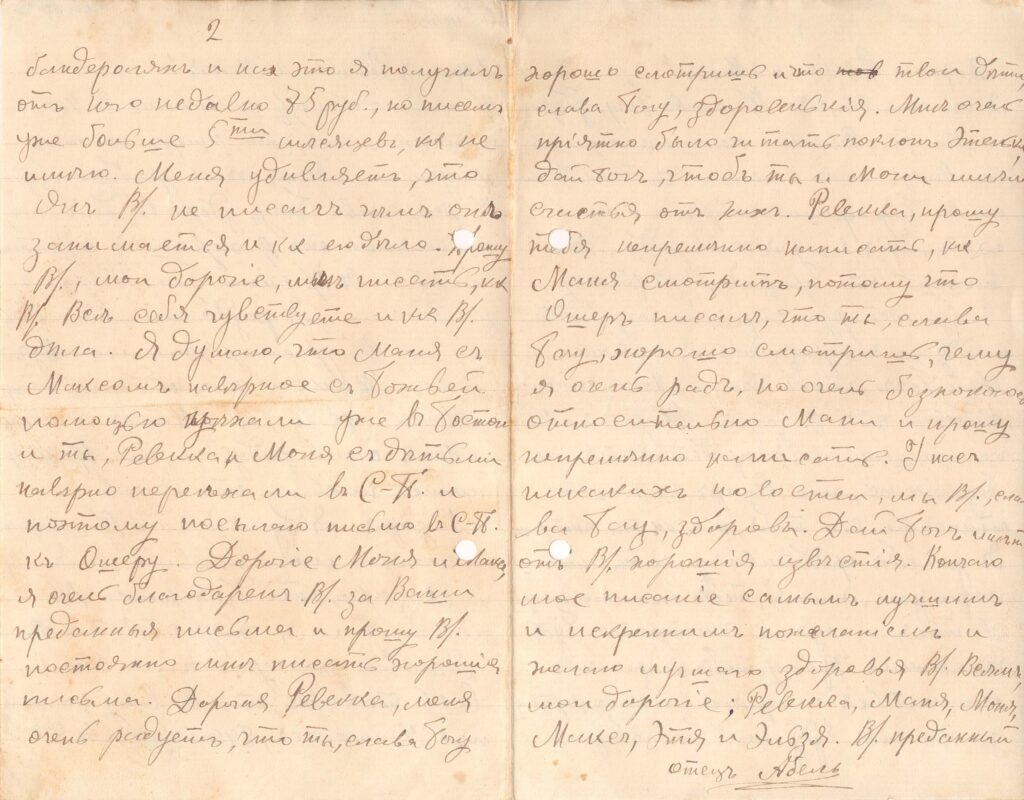 2
бандеролях и на это я получилъ
отъ него недавно 75 руб., но писемъ
уже больше 5ти месяцевъ, кк не
имею. Меня удивляетъ, что
онъ В/. не писалъ чѣмъ онъ
занимается и кк его дѣло. Прошу
В/., мои дорогіе, мнѣ писать, кк
В/. Всѣ себя чувствуете и кк В/.
дѣла. Я думаю, что Маня съ
Максомъ навѣрное съ Божьей
помощью уже въ
и ты, Ревекка и Моня съ дѣтьми
навѣрно переѣхали въ С-П. и
поэтому посылаю письмо въ С-П.
къ Ошеру. Дорогіе Моня и Макс,
я очень благодаренъ В/. за Ваши
преданныя письма и прошу В/.
постоянно мнѣ писать хорошія
письма. Дорогая Ревекка, меня
очень радуетъ, что ты, слава Богу
хорошо смотришь и что твои дѣти,
слава Богу, здоровенькія. Мнѣ очень
пріятно было читать поклонъ
дай Богъ, чтобъ ты и Моня имѣли
счастья отъ нихъ. Ревекка, прошу
тебя непремѣнно написать, кк
Маня смотритъ, потому что
Ошеръ писалъ, что ты, слава
Богу, хорошо смотришь, чему
я очень радъ, но очень безпокоюсь
относительно Мани и прошу
непремѣнно написать. У насъ
никакихъ новостей, мы В/., сла-
ва Богу, здоровы. Дай Богъ имѣть
отъ В/. хорошія извѣстія. Кончаю
мое писаніе самымъ лучшимъ
и искреннимъ пожеланіемъ и
желаю лучшаго здоровья В/. Всѣмъ,
мои дорогіе; Ревекка, Маня, Моня,
Максъ, Этя и Эльзя. В/. преданный
отецъ Абель